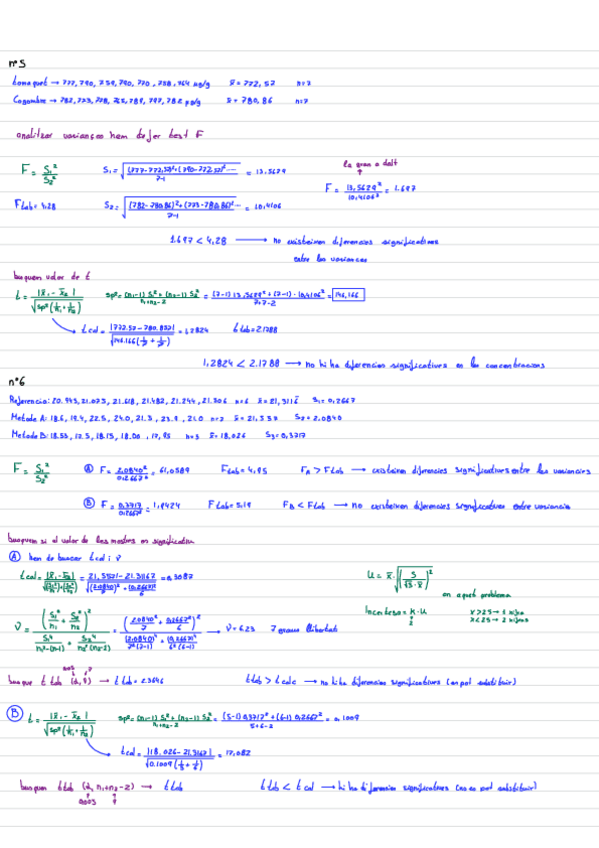 nº5
tomaquet → 777, 790, 759, 790, 770, 758, 764 µg/g x̄ = 772,57 n=7
Cogombre → 782, 773, 778, 765, 789, 797, 782 µg/g x̄ = 780,86 n=7
analitzar variances hem de fer test F
la gran a dalt
F = S₁²/S₂² S₁ = √((777-772,57)²+(790-772,57)².../7-1) = 13,5629 F = 13,5629²/10,4106² = 1.697
Ftab = 4,28 S₂ = √((782-780,86)²+(773-780,86)².../7-1) = 10,4106
1.697 < 4,28 → no existeixen diferencies significatives
entre les variances
busquem valor de t
t = |x̄₁ - x̄₂| / √(sp²(1/n₁ + 1/n₂)) sp² = (n₁-1) S₁² + (n₂-1) S₂² / n₁+n₂-2 = (7-1) 13,5629² + (7-1) · 10,4106² / 7+7-2 = 146,166
t cal = |772.57 - 780.857| / √(146.166(1/7 + 1/7)) = 1,2824 t tab = 2.1788
1,2824 < 2.1788 → no hi ha diferencies significatives en les concentracions
nº6
Referencia: 20.943, 21.073, 21.618, 21.482, 21.244, 21.506 n=6 x̄ = 21,3116 S₁ = 0,2667
Metode A: 18.6, 19.4, 22.5, 24.0, 21.3, 23.9, 21.0 n=7 x̄ = 21,357 S₂ = 2.0840
Metode B: 18.53, 17.5, 18.15, 18.00, 17,95 n=5 x̄ = 18,026 S₃ = 0,3717
F = S₁²/S₂² Ⓐ F = 2.0840²/0.2667² = 61,0589 Ftab = 4,95 FA > Ftab → existeixen diferencies significatives entre les variancies
Ⓑ F = 0.3717²/0.2667² = 1,9424 Ftab = 5,19 FB < Ftab → no existeixen diferencies significatives entre variancies
busquem si el valor de les mostres es significatiu
Ⓐ hem de buscar t cal i ν
t cal = |x̄₁ - x̄₂| / √(S₁²/n₁ + S₂²/n₂) = 21,3571 - 21.31167 / √((2.0840)²/7 + (0.2667)²/6) = 0,3087 U = x̄ · √(S/√3·x̄)²
en aquet problema
Incertesa = K · U
2
ν = (S₁²/n₁ + S₂²/n₂)² / S₁⁴/n₁²(n-1) + S₂⁴/n₂²(n₂-1) = (2.0840²/7 + 0,2667²/6)² / (2.0840)⁴/7²(7-1) + (0.2667)⁴/6²(6-1) → ν = 6.23 7 graus llibertat
busque t tab (α, ν) → t tab = 2.3646 t tab > t calc → no hi ha diferencies significatives (es pot substituir)
Ⓑ t = |x̄₁ - x̄₂| / √(sp²(1/n₁ + 1/n₂)) sp² = (n₁-1) S₁² + (n₂-1) S₂² / n₁+n₂-2 = (5-1) 0.3717² + (6-1) 0.2667² / 5+6-2 = 0.1009
t cal = |18.026 - 21.3167| / √(0.1009(1/5 + 1/6)) = 17,082
busquem t tab (α, n₁+n₂-2) → t tab t tab < t cal → hi ha diferencies significatives (no es pot substituir)